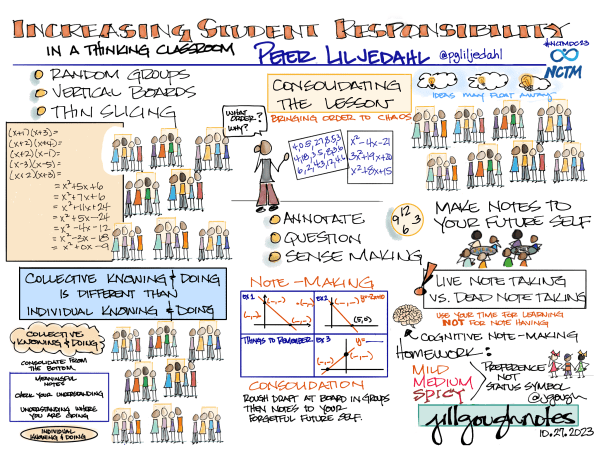 INCREASING STUDENT RESPONSIBILITY
IN A THINKING CLASSROOM
PETER LILJEDAHL @pgliljedahl
#NCTMDC23
NCTM
RANDOM GROUPS
VERTICAL BOARDS
THIN SLICING
(x+1)(x+3)=
(x+2)(x+4)=
(x+2)(x-1)=
(x-3)(x-5)=
(x+2)(x+3)=
= x²+5x+6
= x²+7x+6
= x²+11x+24
= x²+5x-24
= x²-4x-12
= x²-3x-18
= x²+0x-9
WHAT
ORDER?
WHY?
CONSOLIDATING
THE LESSON
BRINGING ORDER TO CHAOS
x²-4x-21
x²+8x+15
IDEAS MAY FLOAT AWAY
ANNOTATE
QUESTION
SENSE MAKING
12
9 3
6
MAKE NOTES TO
YOUR FUTURE SELF
COLLECTIVE KNOWING & DOING
IS DIFFERENT THAN
INDIVIDUAL KNOWING & DOING
COLLECTIVE
KNOWING & DOING
CONSOLIDATE FROM
THE BOTTOM
MEANINGFUL
NOTES
CHECK YOUR UNDERSTANDING
UNDERSTANDING WHERE
YOU ARE GOING
INDIVIDUAL
KNOWING & DOING
NOTE-MAKING
EX 1
(-,-)
(-,-)
EX 2
(5,0)
THINGS TO REMEMBER
EX 3
y=
(-,-)
(-,-)
CONSOLIDATION
ROUGH DRAFT AT BOARD IN GROUPS
THEN NOTES TO YOUR
FORGETFUL FUTURE SELF.
LIVE NOTE TAKING
VS. DEAD NOTE TAKING
USE YOUR TIME FOR LEARNING
NOT FOR NOTE HAVING
COGNITIVE NOTE-MAKING
HOMEWORK:
MILD
MEDIUM
SPICY
PREFERENCE
NOT
STATUS SYMBOL
@jgough
jillgoughnotes
10.27.2023